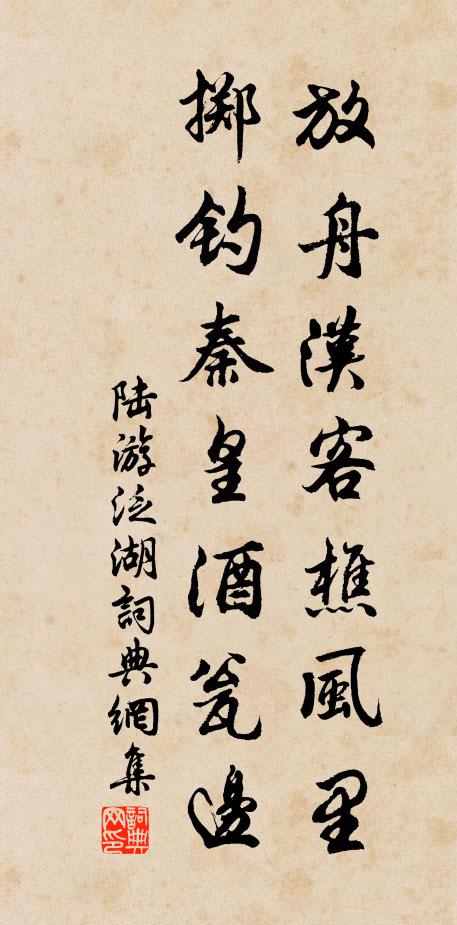 放舟漢客樵風里
擲钓秦皇酒瓮邊
陆游泛湖詞典網集
詞典网印